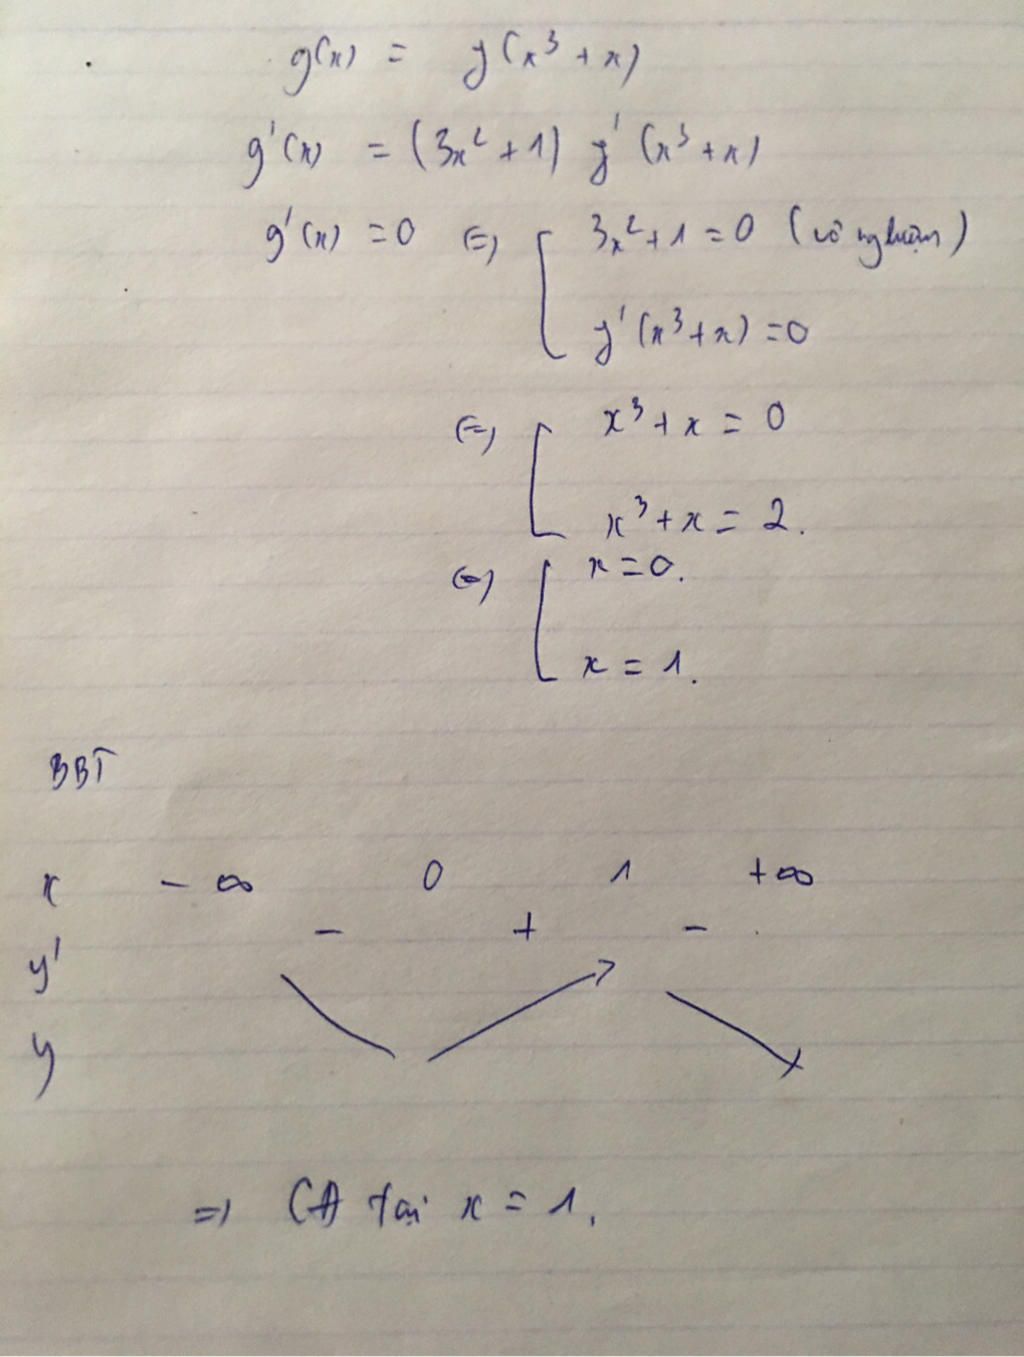 g(x) = y(x³ + x)
g'(x) = (3x² + 1) y'(x³ + x)
g'(x) = 0 ⇔ [ 3x² + 1 = 0 (vô nghiệm)
y'(x³ + x) = 0
⇔ [ x³ + x = 0
x³ + x = 2.
⇔ [ x = 0.
x = 1.
BBT
x - ∞ 0 1 + ∞
y' - + -
y
⇒ CĐ tại x = 1.